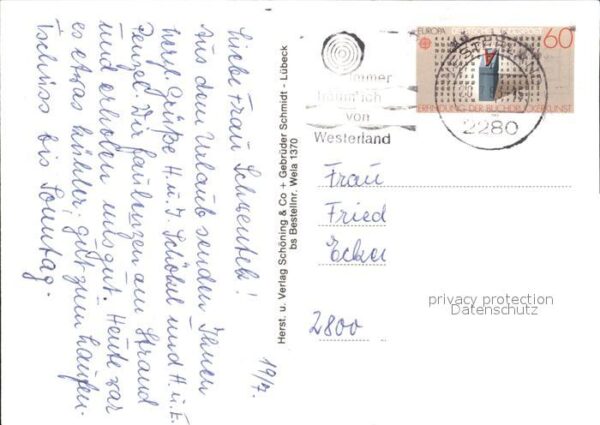 19/7.
Liebe Frau Schwentek!
Aus dem Urlaub senden Ihnen
herzl. Grüße H. u. I. Schökel und H. u. E.
Penzel. Wir faulenzen am Strand
und erholen uns gut. Heute war
es etwas kühler; gilt zum Laufen.
Tschüss bis Sonntag.
Herst. u. Verlag Schöning & Co + Gebrüder Schmidt - Lübeck
bs Bestellnr. Wela 1370
immer
von
Westerland
EUROPA
60
ERFINDUNG DER BUCHDRUCKERKUNST
2280
Frau
Fried
Ecker
2800
privacy protection
Datenschutz